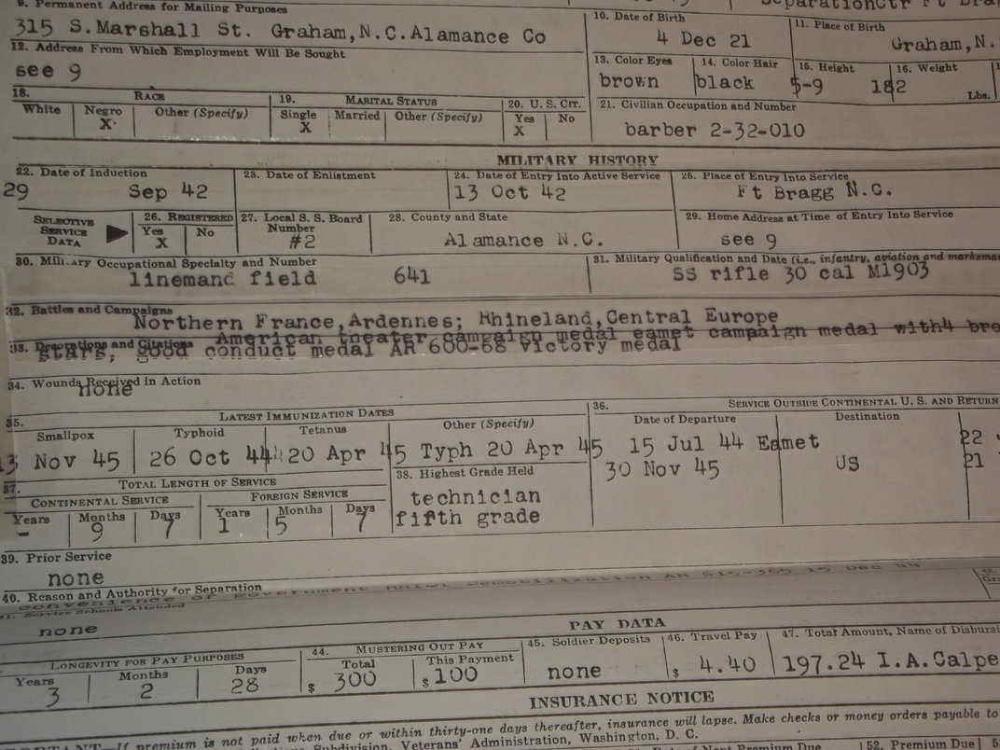 9. Permanent Address for Mailing Purposes
315 S.Marshall St. Graham,N.C.Alamance Co
10. Date of Birth
4 Dec 21
11. Place of Birth
Graham,N.
12. Address From Which Employment Will Be Sought
see 9
13. Color Eyes
brown
14. Color Hair
black
15. Height
5-9
16. Weight
182
Lbs.
18. RACE
White Negro Other (Specify)
X
19. MARITAL STATUS
Single Married Other (Specify)
X
20. U. S. CIT.
Yes No
X
21. Civilian Occupation and Number
barber 2-32-010
MILITARY HISTORY
22. Date of Induction
29 Sep 42
23. Date of Enlistment
24. Date of Entry Into Active Service
13 Oct 42
25. Place of Entry Into Service
Ft Bragg N.C.
SELECTIVE
SERVICE
DATA
26. REGISTERED
Yes No
X
27. Local S. S. Board
Number
#2
28. County and State
Alamance N.C.
29. Home Address at Time of Entry Into Service
see 9
30. Military Occupational Specialty and Number
linemand field 641
31. Military Qualification and Date (i.e., infantry, aviation and marksma
SS rifle 30 cal M1903
32. Battles and Campaigns
Northern France,Ardennes; Rhineland,Central Europe
33. Decorations and Citations
American theater campaign medal eamet campaign medal with4 bro
stars, good conduct medal AR 600-68 victory medal
34. Wounds Received in Action
none
35. LATEST IMMUNIZATION DATES
Smallpox Typhoid Tetanus Other (Specify)
3 Nov 45 26 Oct 44 20 Apr 45 Typh 20 Apr 45
36. SERVICE OUTSIDE CONTINENTAL U. S. AND RETURN
Date of Departure Destination
15 Jul 44 Eamet 22
30 Nov 45 US 21
37. TOTAL LENGTH OF SERVICE
CONTINENTAL SERVICE FOREIGN SERVICE
Years Months Days Years Months Days
- 9 7 1 5 7
38. Highest Grade Held
technician
fifth grade
39. Prior Service
none
40. Reason and Authority for Separation
convenience of Government
none
PAY DATA
LONGEVITY FOR PAY PURPOSES
Years Months Days
3 2 28
44. MUSTERING OUT PAY
Total This Payment
$ 300 $ 100
45. Soldier Deposits
none
46. Travel Pay
$ 4.40
47. Total Amount, Name of Disbursi
197.24 I.A.Calpe
INSURANCE NOTICE
If premium is not paid when due or within thirty-one days thereafter, insurance will lapse. Make checks or money orders payable to
Subdivision, Veterans' Administration, Washington, D. C.
52. Premium Due